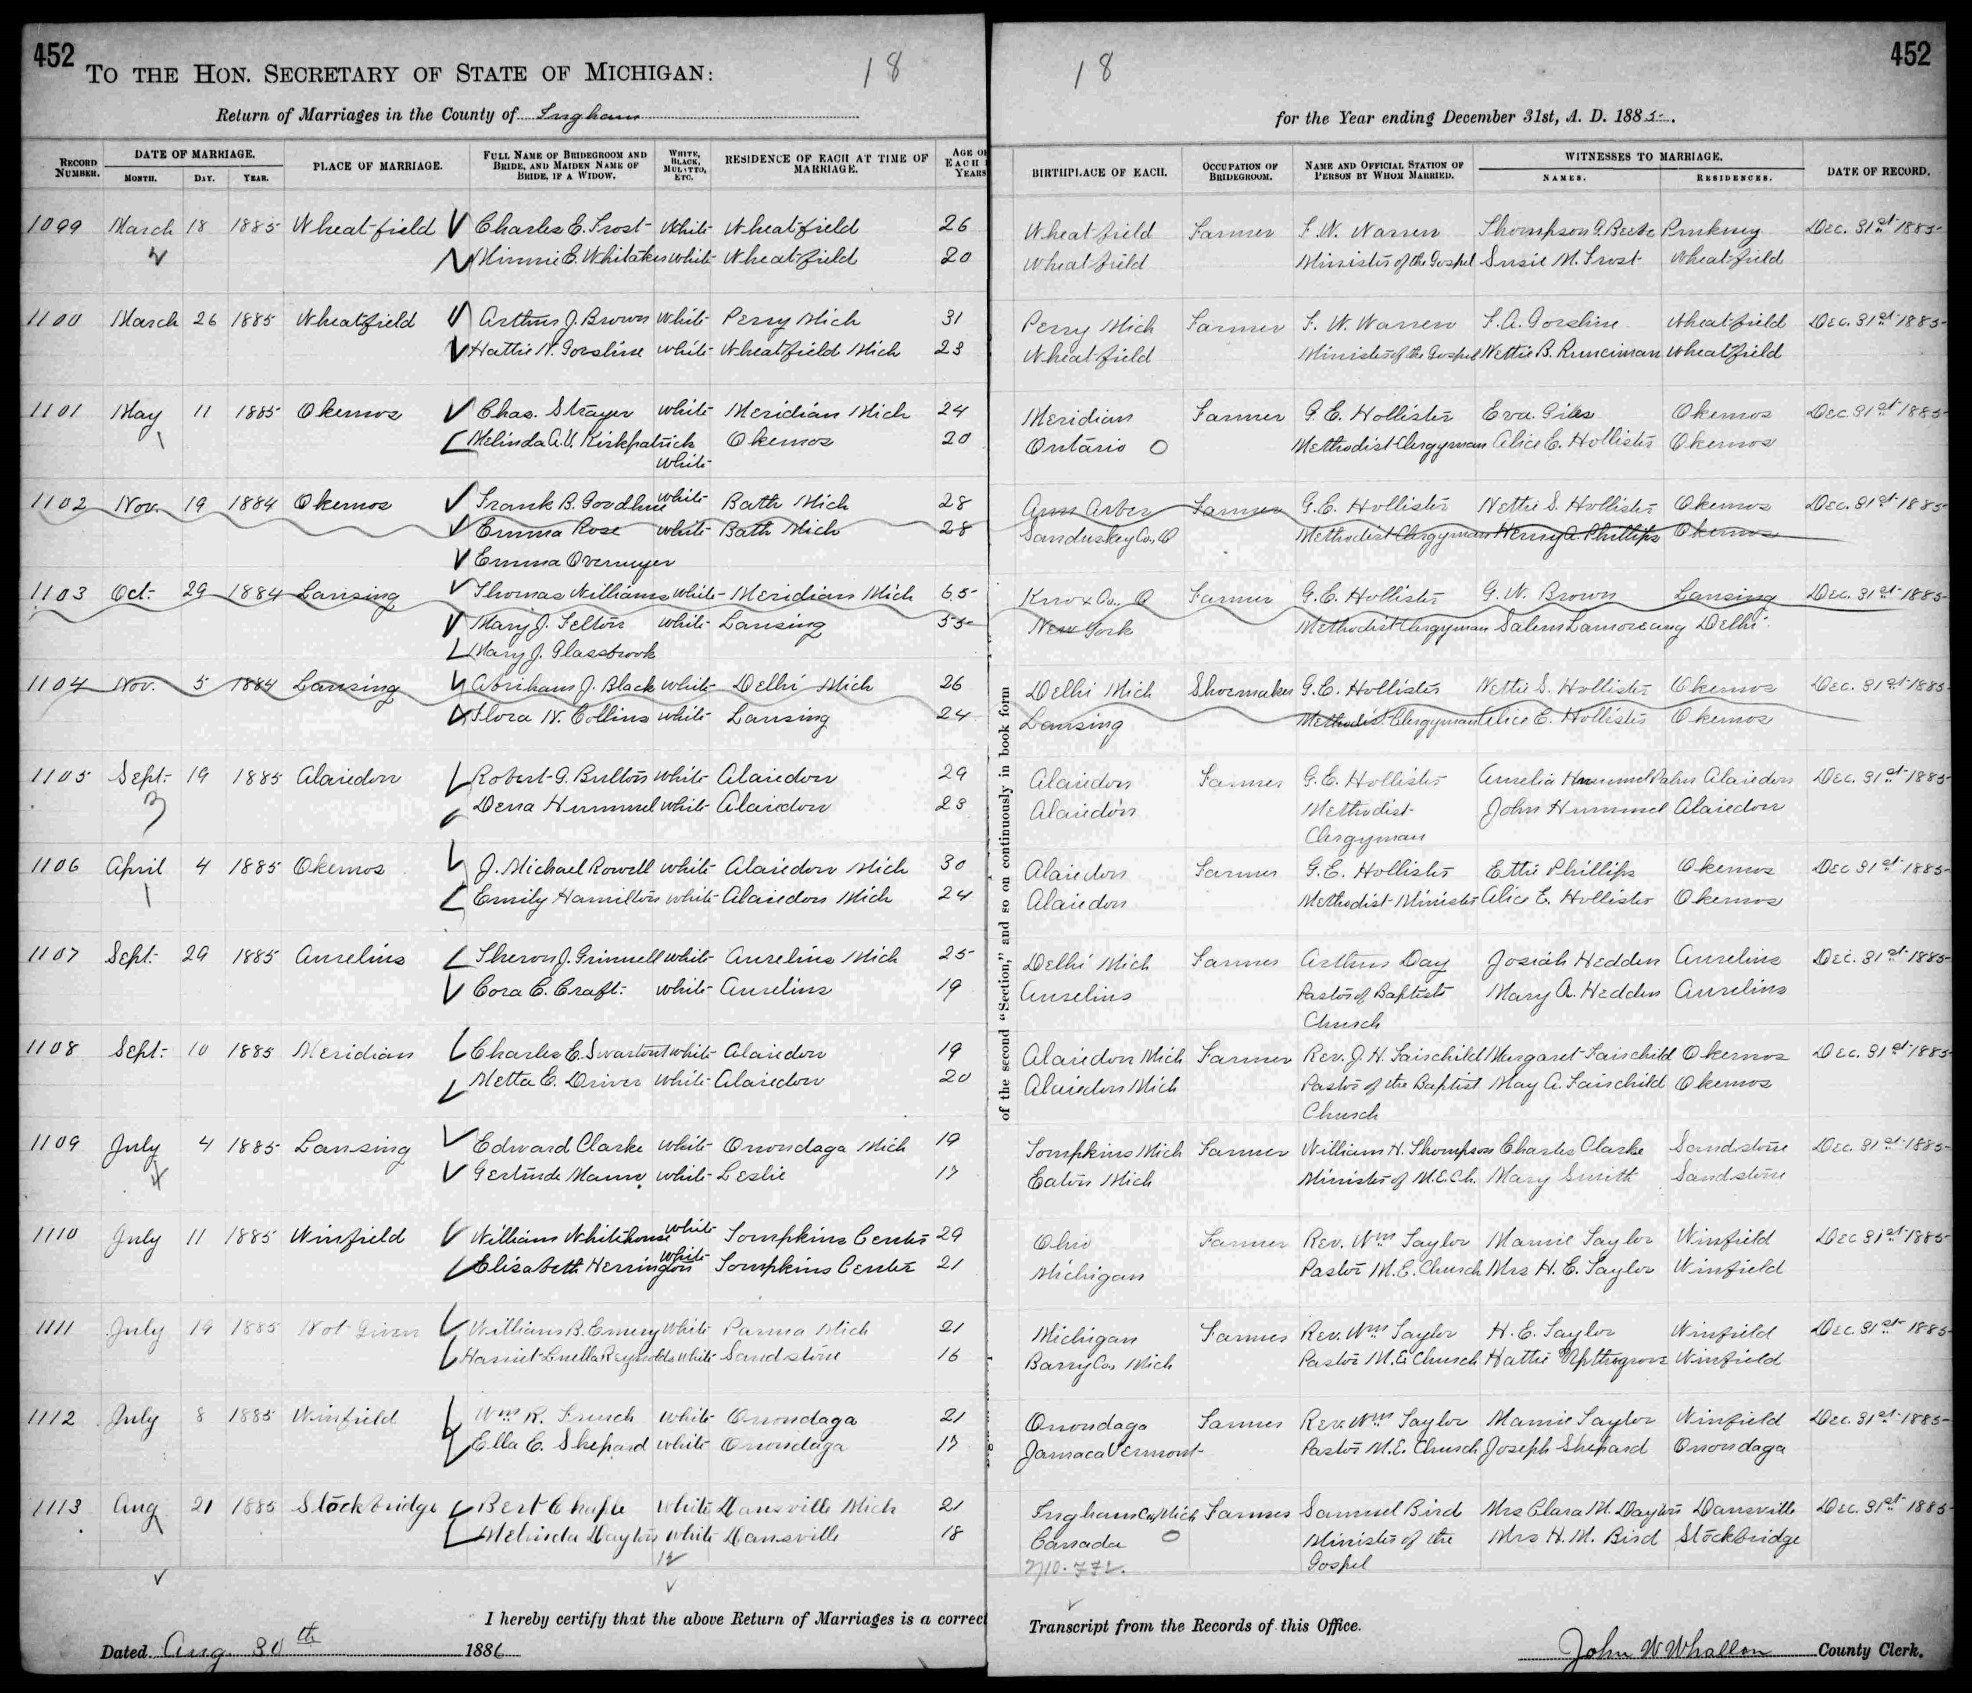 452
452
To the Hon. Secretary of State of Michigan:
18
18
Return of Marriages in the County of Ingham
for the Year ending December 31st, A. D. 1885.
Record Number.
Date of Marriage.
Month. Day. Year.
Place of Marriage.
Full Name of Bridegroom and Bride, and Maiden Name of Bride, if a Widow.
White, Black, Mulatto, Etc.
Residence of each at time of Marriage.
Age of Each Years
Birthplace of Each.
Occupation of Bridegroom.
Name and Official Station of Person by Whom Married.
Witnesses to Marriage.
Names. Residences.
Date of Record.
1099 March 18 1885 Wheatfield Charles E. Frost White Wheatfield 26 Wheatfield Farmer F. W. Warren Thompson G. Beebe Pinkney Dec. 31st 1885
Minnie E. Whitaker White Wheatfield 20 Wheatfield Minister of the Gospel Susie M. Frost Wheatfield
1100 March 26 1885 Wheatfield Arthur J. Brown White Perry Mich 31 Perry Mich Farmer F. W. Warren F. A. Gorsline Wheatfield Dec. 31st 1885
Hattie N. Gorsline White Wheatfield Mich 23 Wheatfield Minister of the Gospel Nettie B. Runciman Wheatfield
1101 May 11 1885 Okemos Chas. Strayer White Meridian Mich 24 Meridian Farmer G. E. Hollister Eva Giles Okemos Dec 31st 1885
Melinda A. V. Kirkpatrick Okemos 20 Ontario O Methodist Clergyman Alice E. Hollister Okemos
White
1102 Nov. 19 1884 Okemos Frank B. Goodhue White Bath Mich 28 Ann Arbor Farmer G. E. Hollister Nettie S. Hollister Okemos Dec. 31st 1885
Emma Rose White Bath Mich 28 Sandusky Co, O Methodist Clergyman Henry A. Phillips Okemos
Emma Overmyer
1103 Oct. 29 1884 Lansing Thomas Williams White Meridian Mich 65 Knox Co., O Farmer G. E. Hollister G. W. Brown Lansing Dec. 31st 1885
Mary J. Felton White Lansing 55 New York Methodist Clergyman Salem Lamoreaux Delhi
Mary J. Glassbrook
1104 Nov. 5 1884 Lansing Abriham J. Black White Delhi Mich 26 Delhi Mich Shoemaker G. E. Hollister Nettie S. Hollister Okemos Dec. 31st 1885
Flora N. Collins White Lansing 24 Lansing Methodist Clergyman Alice E. Hollister Okemos
1105 Sept. 19 1885 Alaiedon Robert G. Bulton White Alaiedon 29 Alaiedon Farmer G. E. Hollister Aurelia Hummel Alaiedon Dec. 31st 1885
3 Dena Hummel White Alaiedon 23 Alaiedon Methodist John Hummel Alaiedon
Clergyman
1106 April 4 1885 Okemos J. Michael Rowell White Alaiedon Mich 30 Alaiedon Farmer G. E. Hollister Ettie Phillips Okemos Dec 31st 1885
Emily Hamilton White Alaiedon Mich 24 Alaiedon Methodist Minister Alice E. Hollister Okemos
1107 Sept. 29 1885 Aurelius Theron J. Grinnell White Aurelius Mich 25 Delhi Mich Farmer Arthur Day Josiah Hedden Aurelius Dec. 31st 1885
Cora C. Craft White Aurelius 19 Aurelius Pastor of Baptist Mary A. Hedden Aurelius
Church
1108 Sept. 10 1885 Meridian Charles E. Swartout White Alaiedon 19 Alaiedon Mich Farmer Rev. J. H. Fairchild Margaret Fairchild Okemos Dec. 31st 1885
Metta E. Driver White Alaiedon 20 Alaiedon Mich Pastor of the Baptist May A. Fairchild Okemos
Church
1109 July 4 1885 Lansing Edward Clarke White Onondaga Mich 19 Tompkins Mich Farmer William H. Thompson Charles Clarke Sandstone Dec. 31st 1885
Gertrude Mann White Leslie 17 Eaton Mich Minister of M.E. Ch. Mary Smith Sandstone
1110 July 11 1885 Winfield William Whitehouse White Tompkins Center 29 Ohio Farmer Rev. Wm Taylor Mamie Taylor Winfield Dec 31st 1885
Elisabeth Herrington White Tompkins Center 21 Michigan Pastor M.E. Church Mrs H. E. Taylor Winfield
1111 July 19 1885 Not Given William B. Emery White Parma Mich 21 Michigan Farmer Rev. Wm Taylor H. E. Taylor Winfield Dec. 31st 1885
Harriet Luella Reynolds White Sandstone 16 Barry Co Mich Pastor M.E. Church Hattie Upthegrove Winfield
1112 July 8 1885 Winfield Wm R. French White Onondaga 21 Onondaga Farmer Rev. Wm Taylor Mamie Taylor Winfield Dec. 31st 1885
Ella E. Shepard White Onondaga 17 Jamaca Vermont Pastor M.E. Church Joseph Shepard Onondaga
1113 Aug 21 1885 Stockbridge Bert Chafie White Dansville Mich 21 Ingham Co Mich Farmer Samuel Bird Mrs Clara M. Dayton Dansville Dec. 31st 1885
Melinda Dayton White Dansville 18 Canada O Minister of the Mrs H. M. Bird Stockbridge
Gospel
of the second "Section," and so on continuously in book form
I hereby certify that the above Return of Marriages is a correct
Transcript from the Records of this Office.
Dated Aug. 30th 1886
John W Whallon County Clerk.